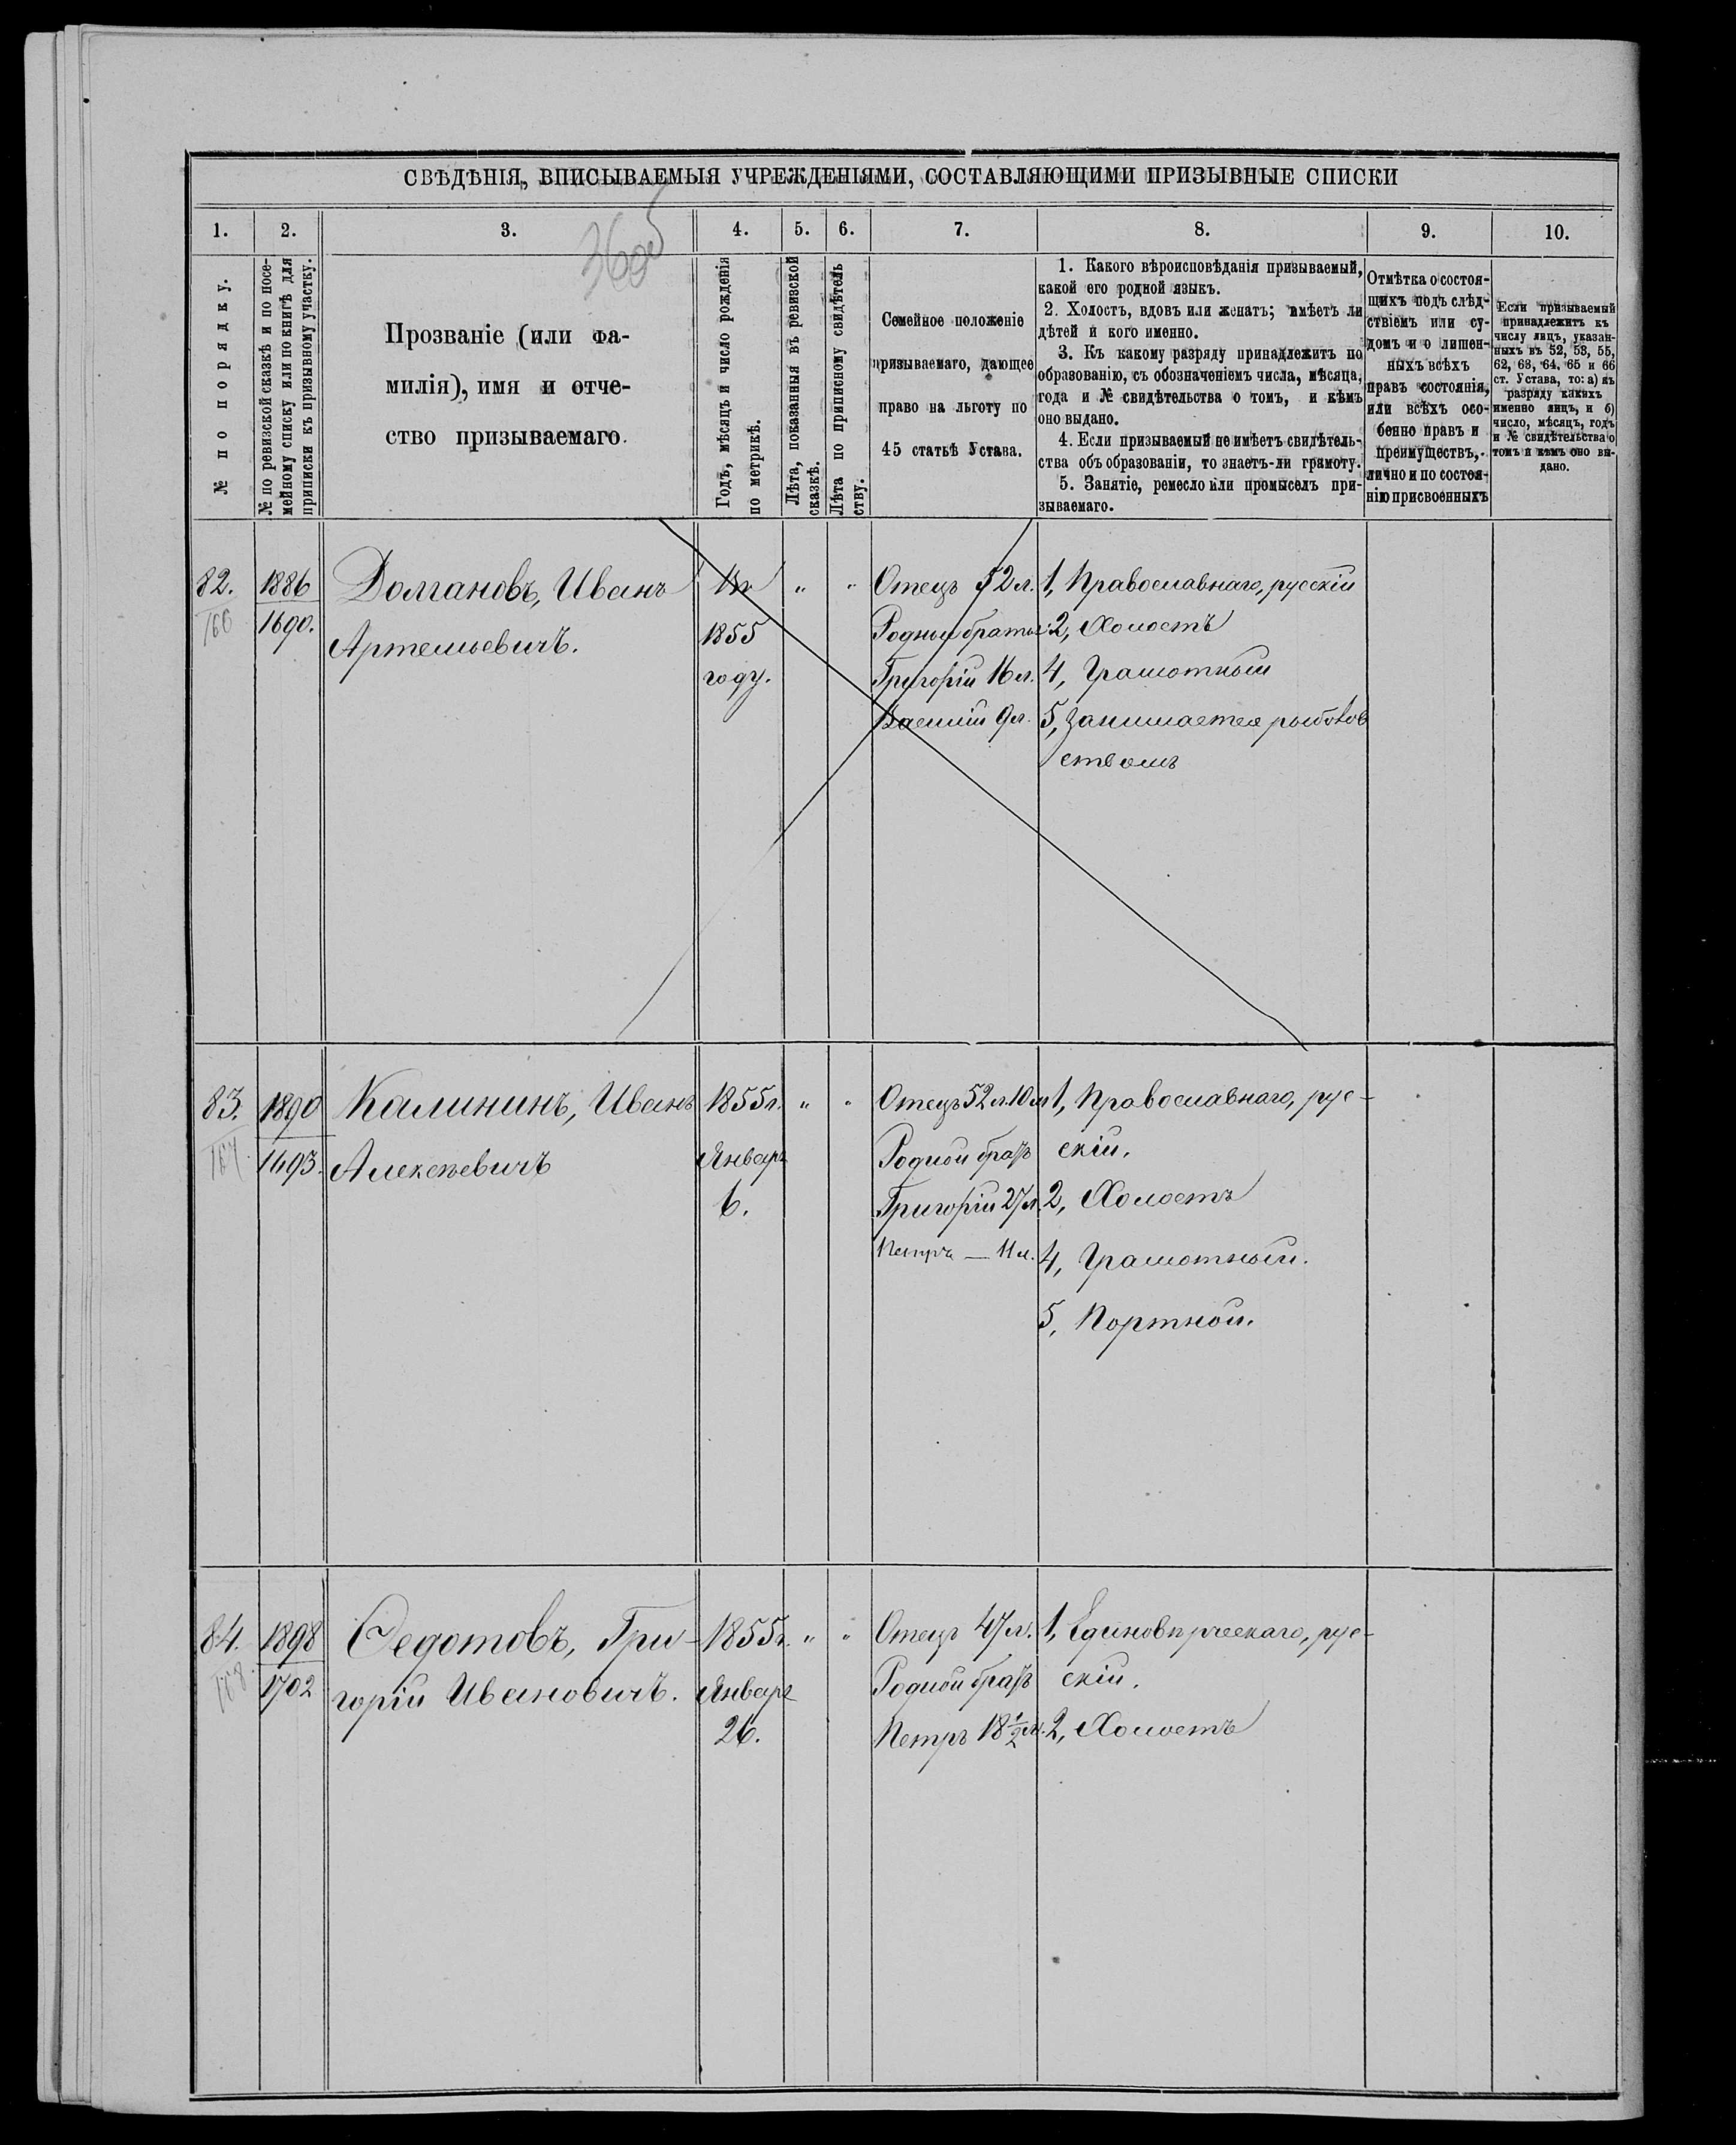 СВѢДѢНІЯ, ВПИСЫВАЕМЫЯ УЧРЕЖДЕНІЯМИ, СОСТАВЛЯЮЩИМИ ПРИЗЫВНЫЕ СПИСКИ
36об
1. 2. 3. 4. 5. 6. 7. 8. 9. 10.
№ по порядку.
№ по ревизской сказкѣ и по посе-
мейному списку или по книгѣ для
приписки къ призывному участку.
Прозваніе (или фа-
милія), имя и отче-
ство призываемаго.
Годъ, мѣсяцъ и число рожденія
по метрикѣ.
Лѣта, показанныя въ ревизской
сказкѣ.
Лѣта по приписному свидѣтель
ству.
Семейное положеніе
призываемаго, дающее
право на льготу по
45 статьѣ Устава.
1. Какого вѣроисповѣданія призываемый,
какой его родной языкъ.
2. Холостъ, вдовъ или женатъ; имѣетъ ли
дѣтей и кого именно.
3. Къ какому разряду принадлежитъ по
образованію, съ обозначеніемъ числа, мѣсяца,
года и № свидѣтельства о томъ, и кѣмъ
оно выдано.
4. Если призываемый не имѣетъ свидѣтель-
ства объ образованіи, то знаетъ-ли грамоту.
5. Занятіе, ремесло или промыселъ при-
зываемаго.
Отмѣтка о состоя-
щихъ подъ слѣд-
ствіемъ или су-
домъ и о лишен-
ныхъ всѣхъ
правъ состоянія,
или всѣхъ осо-
бенно правъ и
преимуществъ,
лично и по состоя-
нію присвоенныхъ
Если призываемый
принадлежитъ къ
числу лицъ, указан-
ныхъ въ 52, 53, 55,
62, 63, 64, 65 и 66
ст. Устава, то: а) къ
разряду какихъ
именно лицъ, и б)
число, мѣсяцъ, годъ
и № свидѣтельства о
томъ и кѣмъ оно вы-
дано.
82.
166
1886
1690.
Долгановъ, Иванъ
Артемьевичъ.
Въ
1855
году.
" "
Отецъ 52 л.
Родные братья:
Григорій 16 л.
Василій 9 л.
1, Православнаго, русскій
2, Холостъ
4, Грамотный
5, Занимается рыболов
ствомъ
83.
167.
1890
1693.
Калининъ, Иванъ
Алексѣевичъ
1855 г.
Январь
6.
" "
Отецъ 52 л. 10 м
Родной братъ
Григорій 27 л.
Петръ — 11 л.
1, Православнаго, рус-
скій.
2, Холостъ
4, Грамотный.
5, Портной.
84.
168.
1898
1702
Федотовъ, Гри-
горій Ивановичъ.
1855 г.
Январь
26.
" "
Отецъ 47 л.
Родной братъ
Петръ 18 1/2 л.
1, Единовѣрческаго, рус-
скій.
2, Холостъ